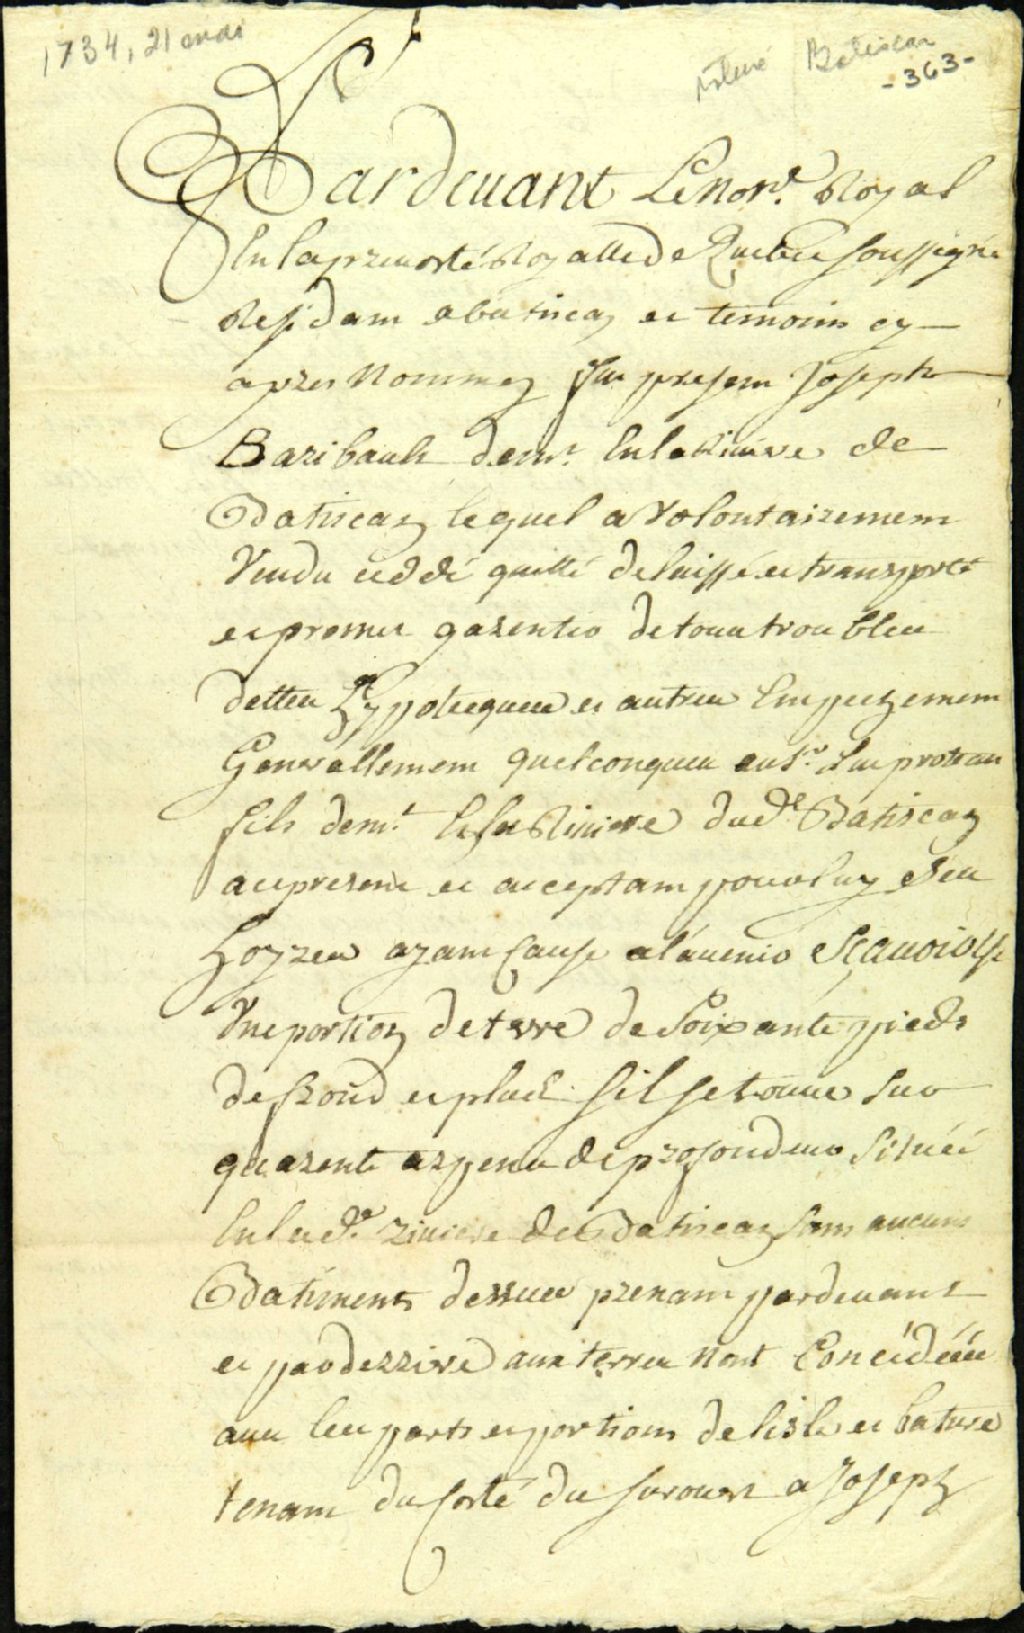 1734, 21
Batiscan
-363-
Pardevant Le Nore. Royal
En la prevosté Royalle de Quebec soussigné
Residant a batiscan et temoins cy
apres Nommez fut present Joseph
Baribault demt. En la Riviere de
Batiscan lequel a Volontairement
Vendu ceddé quitté delaissé et transporté
et promet garentir de tous troubles
dettes hypotecques et autres Empechemens
Generallement quelconques au Sr. Luc proteau
fils demt. En la Riviere dud. Batiscan
a ce present et acceptant pour luy Ses
hoyres ayant Cause a l'avenir Scavoir Est
Vne portion de terre de Soixante pieds
de front et plus sil se trouve sur
quarente arpens de profondeur Situéé
En lade. riviere de Batiscan sans aucuns
Batiments dessus prenant pardevant
et par derriere aux terres Nont Concédéés
avec les parts et portions de lisle et bature
tenant du costé du surouest a Joseph